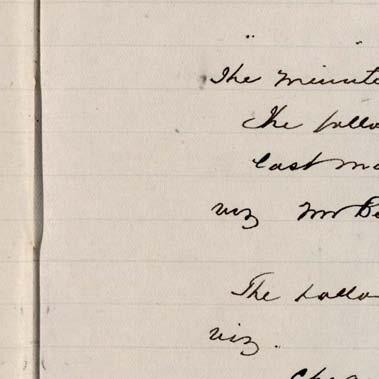 " "
The minute
The follo
last m
viz Mr Be
The follo
viz.